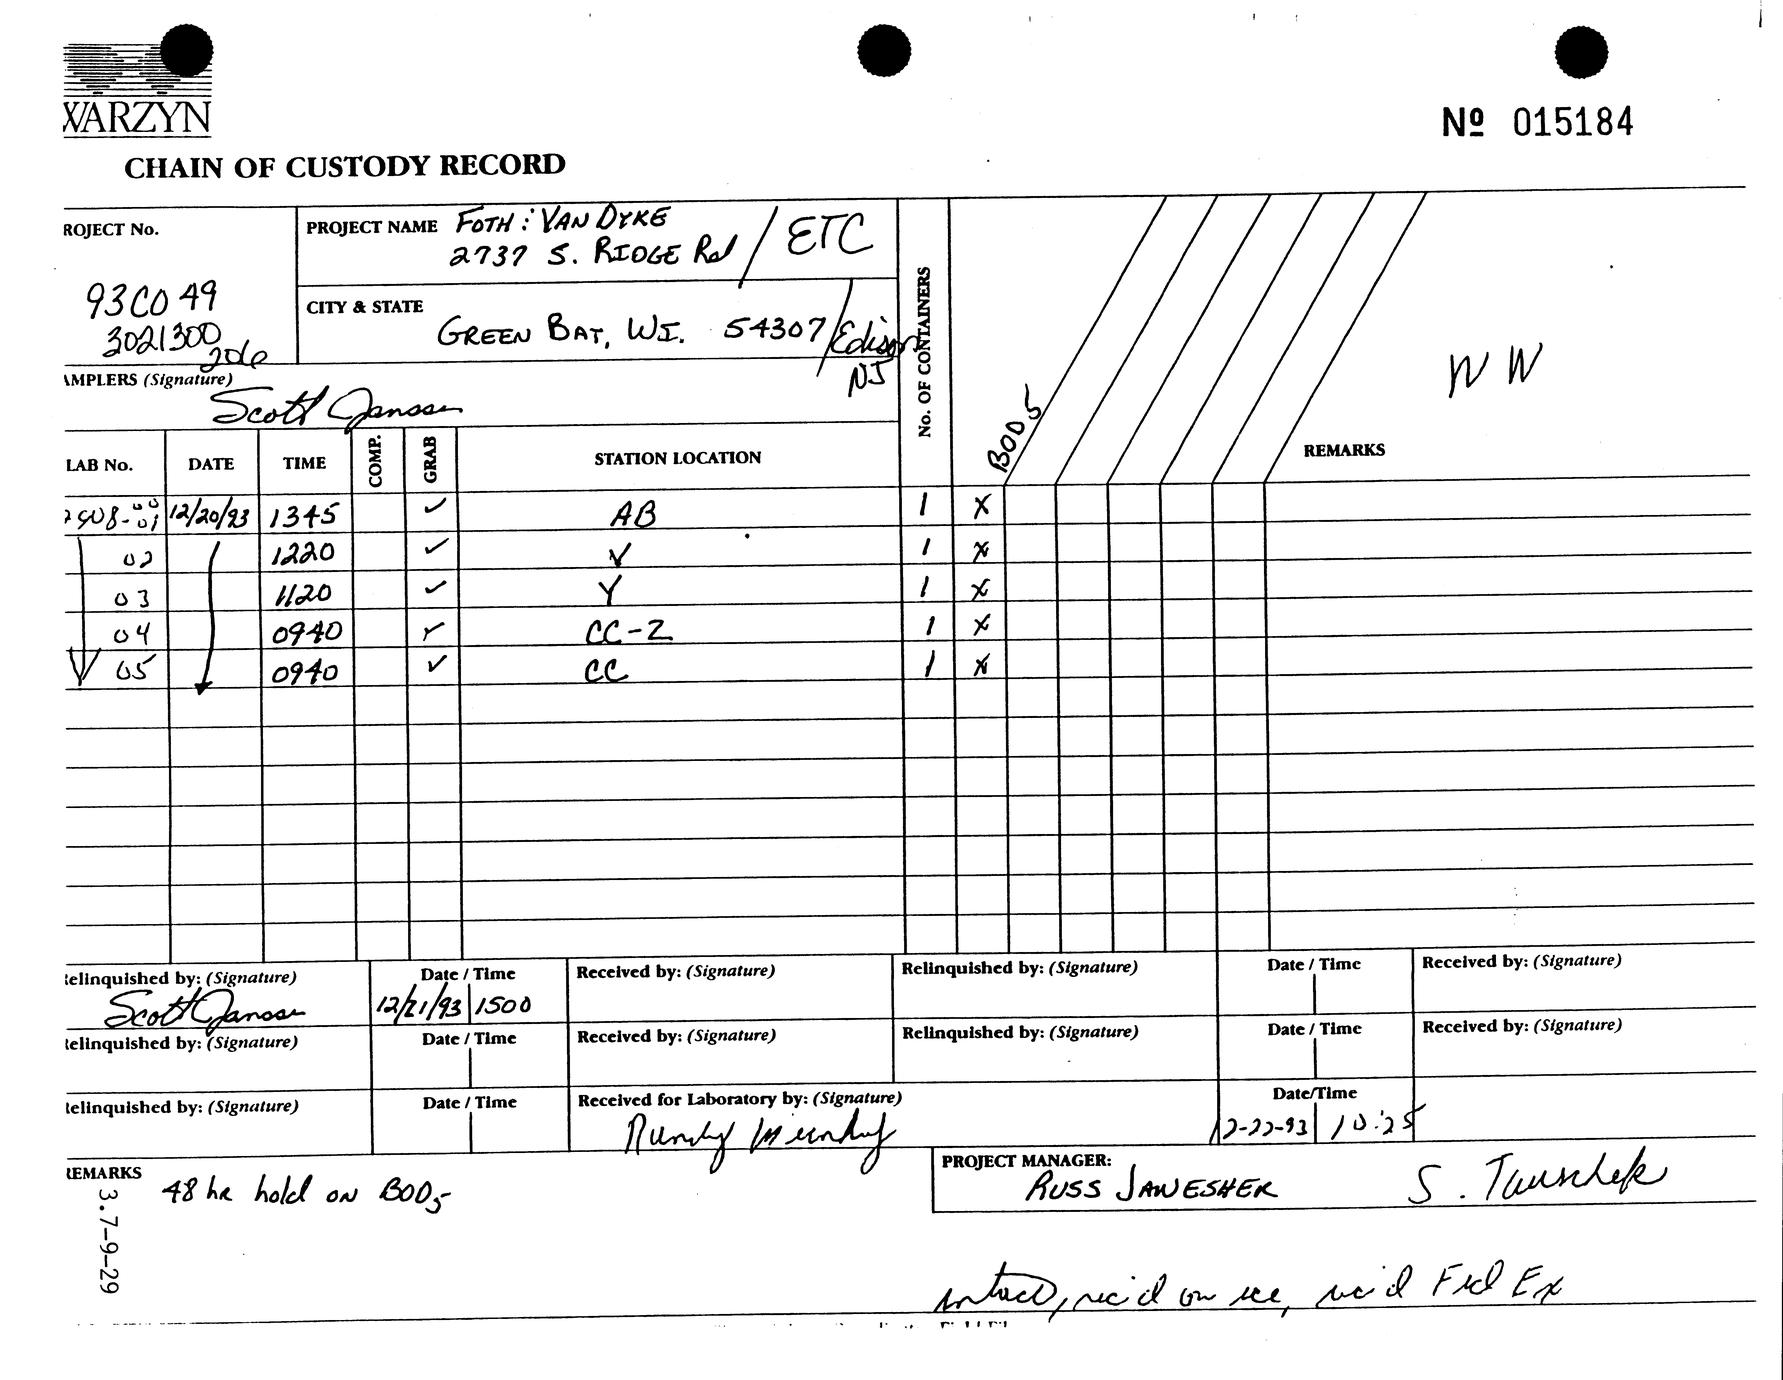 WARZYN
Nº 015184
CHAIN OF CUSTODY RECORD
ROJECT No.
93C049
3021300
206
PROJECT NAME FOTH : VAN DYKE / ETC
2737 S. RIDGE Rd
CITY & STATE
GREEN BAY, WI. 54307 / Edison
NJ
AMPLERS (Signature)
Scott Janssen
No. OF CONTAINERS
BOD5
REMARKS
WW
LAB No. DATE TIME COMP. GRAB STATION LOCATION
12/20/93 1345 ✓ AB 1 X
02 1220 ✓ V 1 X
03 1120 ✓ Y 1 X
04 0940 ✓ CC-2 1 X
05 0940 ✓ CC 1 X
Relinquished by: (Signature) Date / Time Received by: (Signature) Relinquished by: (Signature) Date / Time Received by: (Signature)
Scott Janssen 12/21/93 1500
Relinquished by: (Signature) Date / Time Received by: (Signature) Relinquished by: (Signature) Date / Time Received by: (Signature)
Relinquished by: (Signature) Date / Time Received for Laboratory by: (Signature) Date/Time
12-22-93 10:25
REMARKS 48 hr hold on BOD5
PROJECT MANAGER:
RUSS JANESHEK S. Tauschek
3.7-9-29
intact, rec'd on ice, rec'd Fed Ex